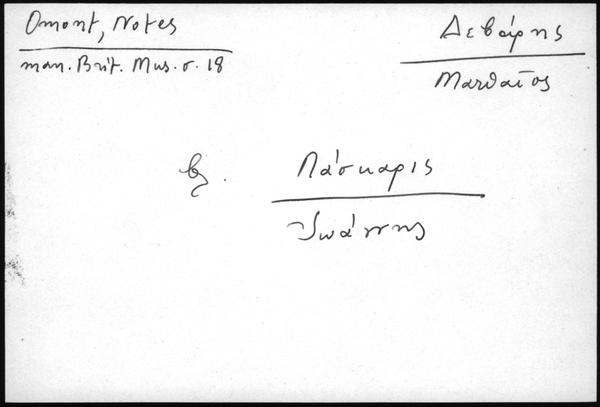 Omont, Notes
man. Brit. Mus. σ. 18
Δεβάρης
Ματθαῖος
βλ.
Λάσκαρις
Ἰωάννης